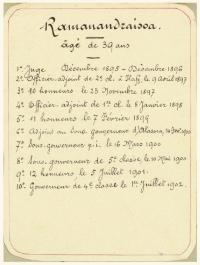 Ramanandraisoa.
âgé de 39 ans
1º Juge Décembre 1895 - Décembre 1896
2º Officier-adjoint de 2e cl. à 9 Août 1897
3º 10 honneurs le 23 Novembre 1897
4º Officier-adjoint de 1re cl. le 8 Janvier 1898
5º 11 honneurs le 7 Février 1899
6º Adjoint au Sous-gouverneur d'
7º Sous-gouverneur p.i. le 16 Mars 1900
8º Sous-gouverneur de 5e classe, le 10 Mai 1900
9º 12 honneurs le 5 Juillet 1901.
10º Gouverneur de 4e classe le 1er Juillet 1902.